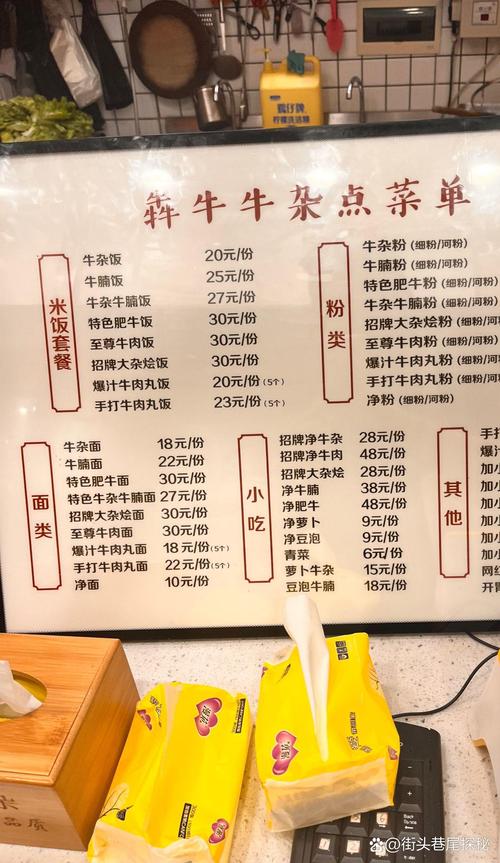 犇牛牛杂点菜单
米饭套餐
牛杂饭 20元/份
牛腩饭 25元/份
牛杂牛腩饭 27元/份
特色肥牛饭 30元/份
至尊牛肉饭 30元/份
招牌大杂烩饭 30元/份
爆汁牛肉丸饭 20元/份(5个)
手打牛肉丸饭 23元/份(5个)
粉类
牛杂粉(细粉/河粉)
牛腩粉(细粉/河粉)
特色肥牛粉(细粉/河粉)
牛杂牛腩粉(细粉/河粉)
招牌大杂烩粉(细粉/河粉
至尊牛肉粉(细粉/河粉)
爆汁牛肉丸粉(细粉/河粉
手打牛肉丸粉(细粉/河粉
净粉(细粉/河粉)
面类
牛杂面 18元/份
牛腩面 22元/份
特色肥牛面 30元/份
特色牛杂牛腩面 27元/份
招牌大杂烩面 30元/份
至尊牛肉面 30元/份
爆汁牛肉丸面 18元/份(5个)
手打牛肉丸面 22元/份(5个)
净面 10元/份
小吃
招牌净牛杂 28元/份
招牌净牛肉 48元/份
招牌大杂烩 28元/份
净牛腩 38元/份
净肥牛 48元/份
净萝卜 9元/份
净豆泡 9元/份
青菜 6元/份
萝卜牛杂 15元/份
豆泡牛腩 18元/份
其他
手打
爆汁
加小
加小
加小
加小
加小
加小
网红
开胃
品质
头条 @街头巷尾探秘